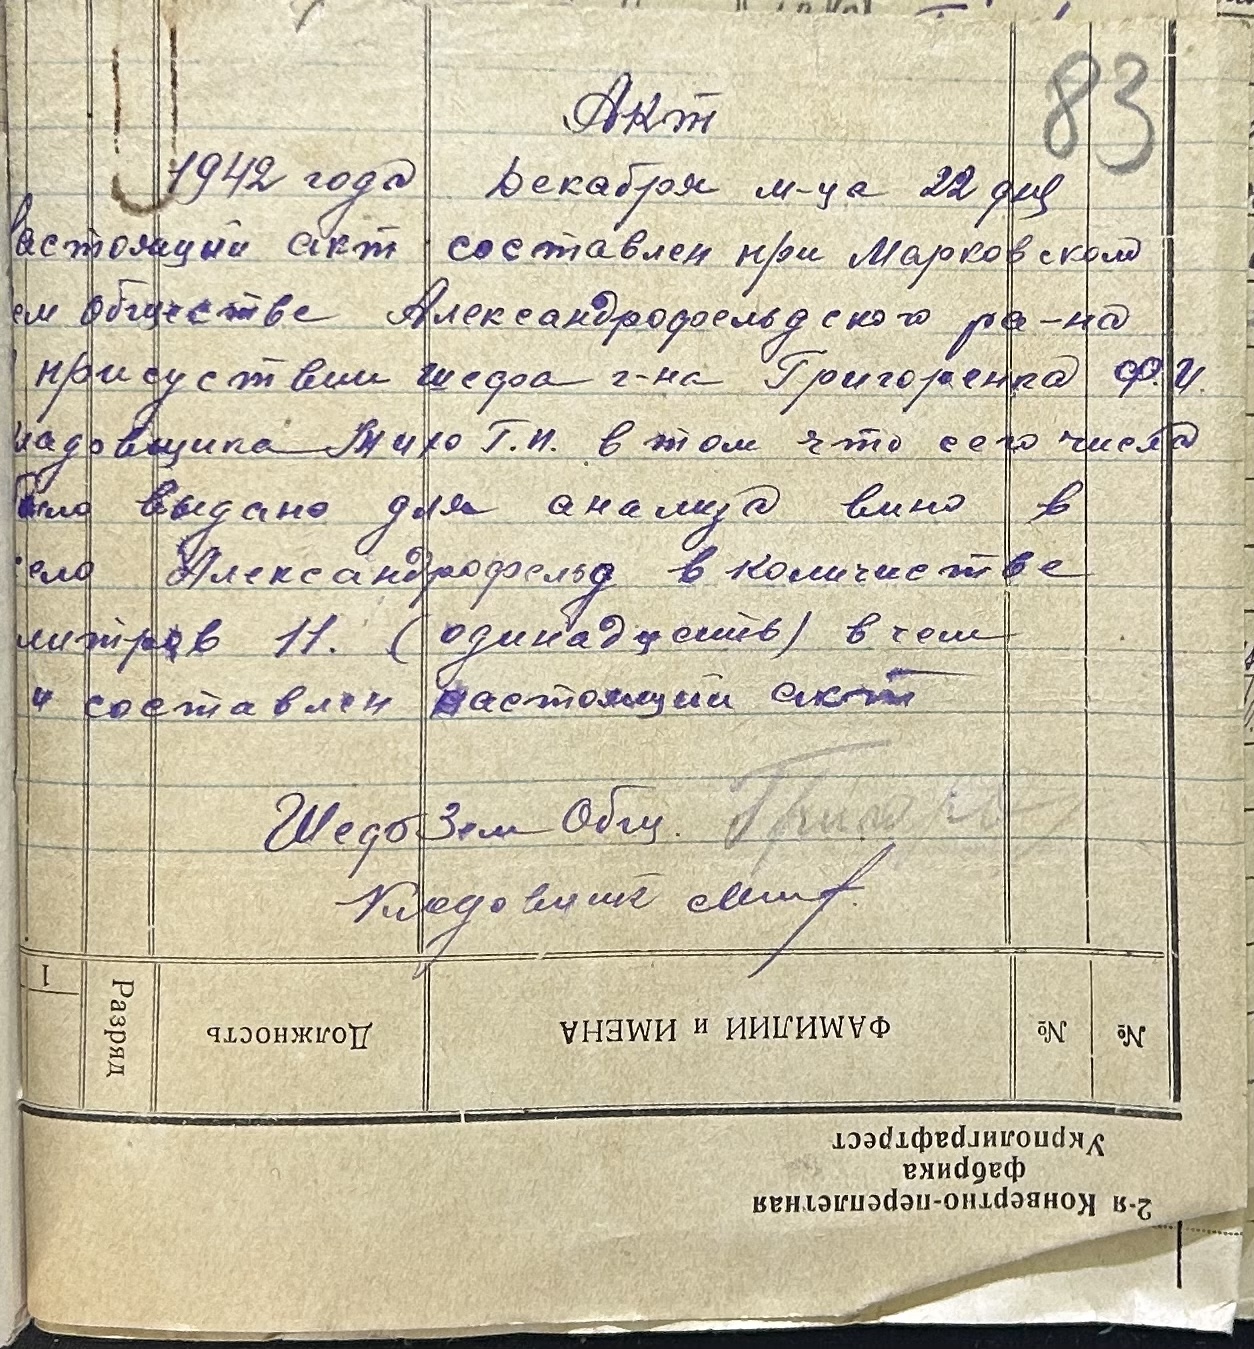 83
Акт
1942 года Декабря м-ца 22 дня
астоящий акт составлен при Марковском
ем обществе Александрофельдского ра-на
присуствии шефа г-на Григоренка Ф.И.
ладовщика Т.И. в том что сего числа
было выдано для анализа вино в
село Александрофельд в количистве
литров 11. (одинадцать) в чем
и составлен настоящий акт
Шеф Зем Общ.
Кладовщик
1
Разряд
Должность
ФАМИЛИИ и ИМЕНА
№
№
2-я Конвертно-переплетная
фабрика
Укрполиграфтрест